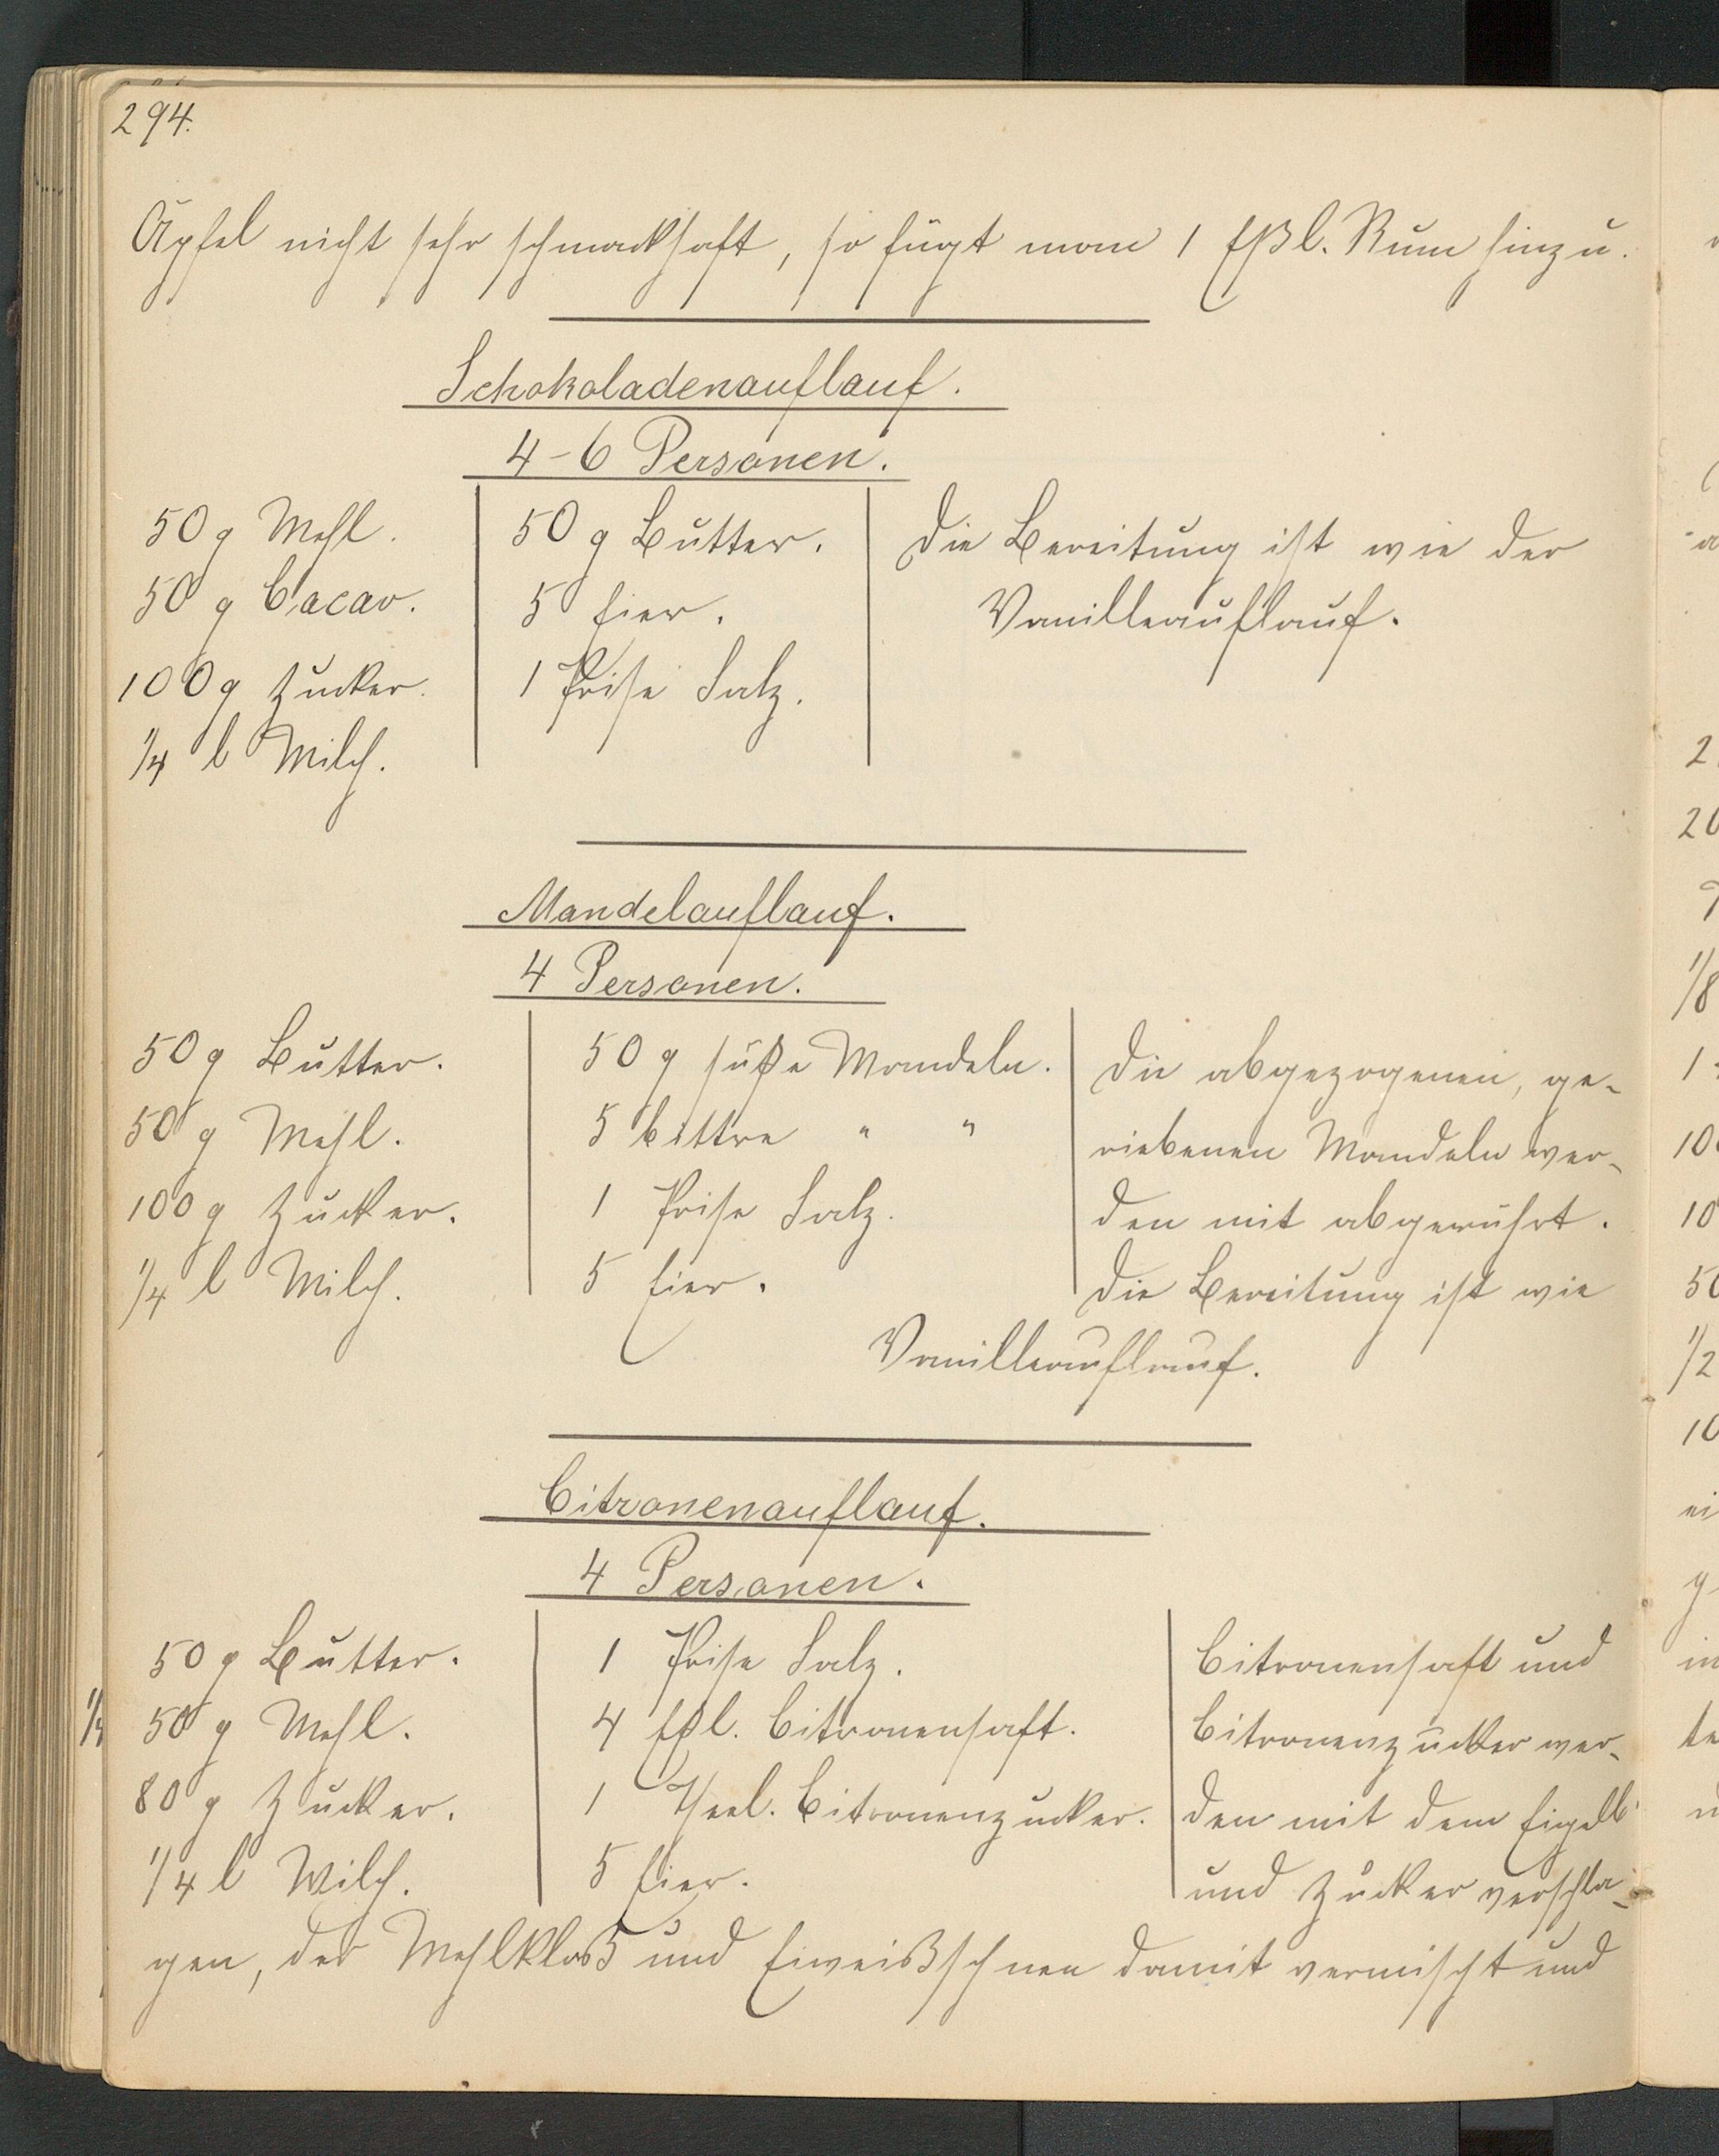 294.
Äpfel nicht sehr schmackhaft, so fügt man 1 Eßl. Rum hinzu.
Schokoladenauflauf.
4-6 Personen.
50 g Mehl.
50 g Cacao.
100 g Zucker.
1/4 l Milch.
50 g Butter.
5 Eier.
1 Prise Salz.
Die Bereitung ist wie der
Vanilleauflauf.
Mandelauflauf.
4 Personen.
50 g Butter.
50 g Mehl.
100 g Zucker.
1/4 l Milch.
50 g süße Mandeln.
5 bittre " "
1 Prise Salz.
5 Eier.
Die abgezogenen, ge-
riebenen Mandeln wer-
den mit abgerührt.
Die Bereitung ist wie
Vanilleauflauf.
Citronenauflauf.
4 Personen.
50 g Butter.
50 g Mehl.
80 g Zucker.
1/4 l Milch.
1 Prise Salz.
4 Eßl. Citronensaft.
1 Theel. Citronenzucker.
5 Eier.
Citronensaft und
Citronenzucker wer-
den mit dem Eigelb
und Zucker verschla-
gen, der Mehlkloß und Eiweißschnee damit vermischt und